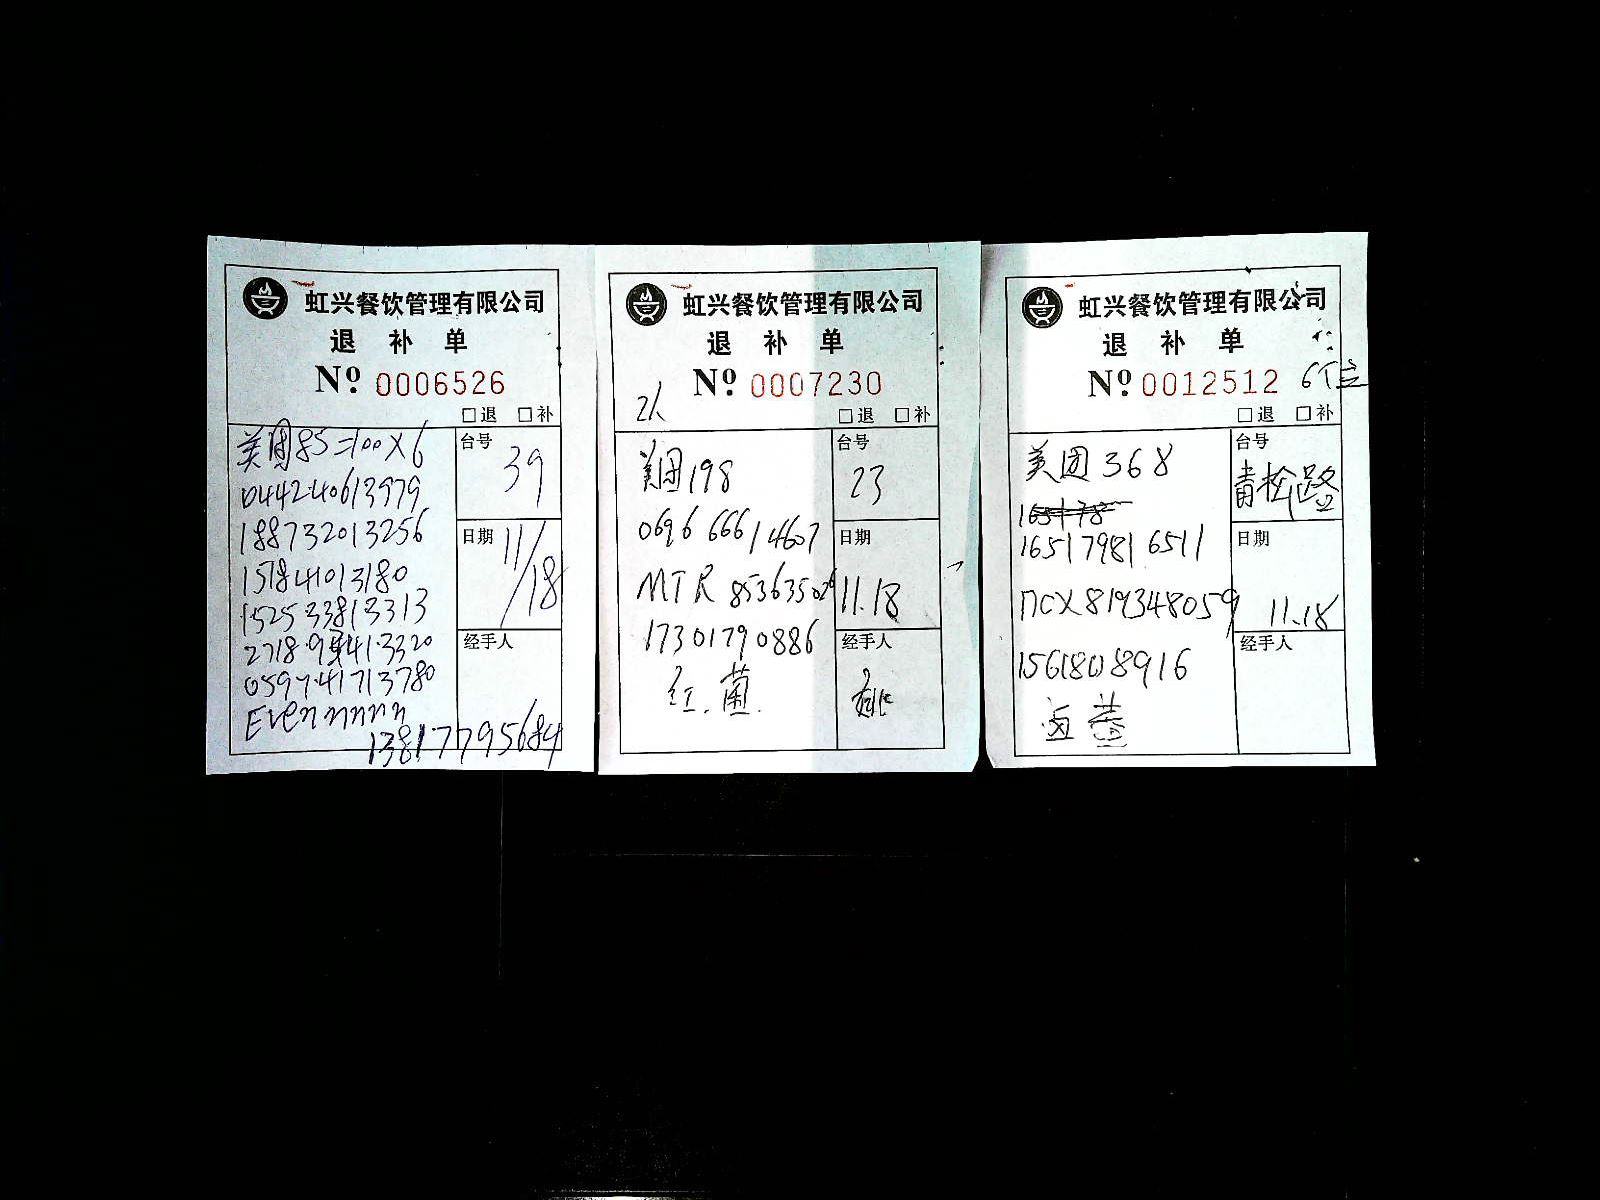 虹兴餐饮管理有限公司
退 补 单
Nº 0006526
□退 □补
美团85=100X6
044240613979
188732013256
151841013180
152533813313
059741713780
Evennnnn
13817795684
台号
39
日期
11/18
经手人
虹兴餐饮管理有限公司
退 补 单
Nº 0007230
2人
□退 □补
美团198
0696 66614607
MTR 853635026
17301790886
红.菌.
台号
23
日期
11.18
经手人
姚
虹兴餐饮管理有限公司
退 补 单
Nº 0012512
6个
□退 □补
美团368
165179816511
ncx819348059
15618018916
台号
青松路
日期
11.18
经手人